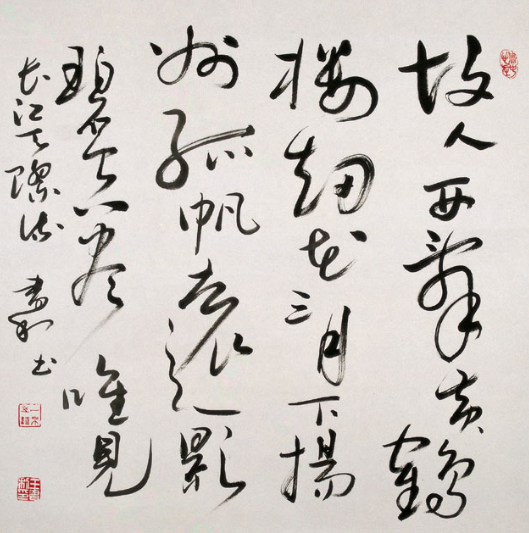 故人西辭黄鶴
樓烟花三月下揚
州孤帆遠影
碧空盡唯見
長江天際流 書